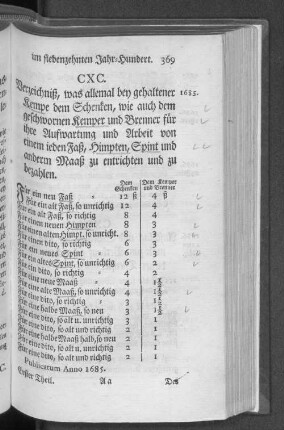 im siebenzehnten Jahr-Hundert. 369
CXC.
Verzeichniß, was allemal bey gehaltener 1685.
Kempe dem Schenken, wie auch dem
geschwornen Kemper und Brenner für
ihre Aufwartung und Arbeit von
einem jeden Faß, Himpten, Spint und
anderm Maaß zu entrichten und zu
bezahlen.
Dem Schenken Dem Kemper und Brenner
Für ein neu Faß 12 ß 4 ß
Für ein alt Faß, so unrichtig 12 4
Für ein alt Faß, so richtig 8 4
Für einen neuen Himpten 8 3
Für einen alten Himpt. so unricht. 8 3
Für einen dito, so richtig 6 3
Für ein neues Spint 6 3
Für ein altes Spint, so unrichtig 6 2
Für ein dito, so richtig 4 2
Für eine neue Maaß 4
Für eine alte Maaß, so unrichtig 4
Für eine dito, so richtig 3
Für eine halbe Maaß, so neu 3
Für eine dito, so alt u. unrichtig 3 1
Für eine dito, so alt und richtig 2 1
Für eine halbe Maaß halb, so neu 2 1
Für eine dito, so alt u. unrichtig 2 1
Für eine dito, so alt und richtig 2 1
Publicatum Anno 1685.
Erster Theil. A a Des